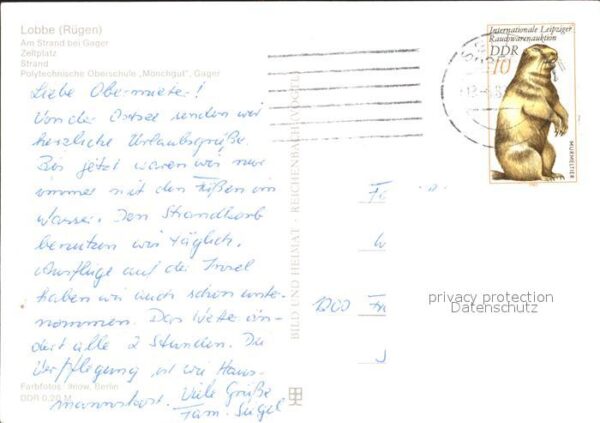 Lobbe (Rügen)
Am Strand bei Gager
Zeltplatz
Strand
Polytechnische Oberschule „Mönchgut“, Gager
Liebe Obermieter!
Von der Ostsee senden wir
herzliche Urlaubsgrüße.
Bis jetzt waren wir nur
immer mit den Füßen im
Wasser. Den Strandkorb
benutzen wir täglich.
Ausflüge auf der Insel
haben wir auch schon unter-
nommen. Das Wetter än-
dert alle 2 Stunden. Die
Verpflegung ist wie Haus-
mannskost. Viele Grüße
Fam. Sügel
Farbfotos: Ihlow, Berlin
DDR 0,20 M
BILD UND HEIMAT · REICHENBACH (VOGTL)
Internationale Leipziger
Rauchwarenauktion
DDR
10
MURMELTIER
Fa
1200
privacy protection
Datenschutz